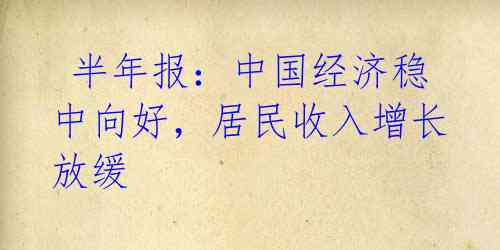 半年报：中国经济稳
中向好，居民收入增长
放缓